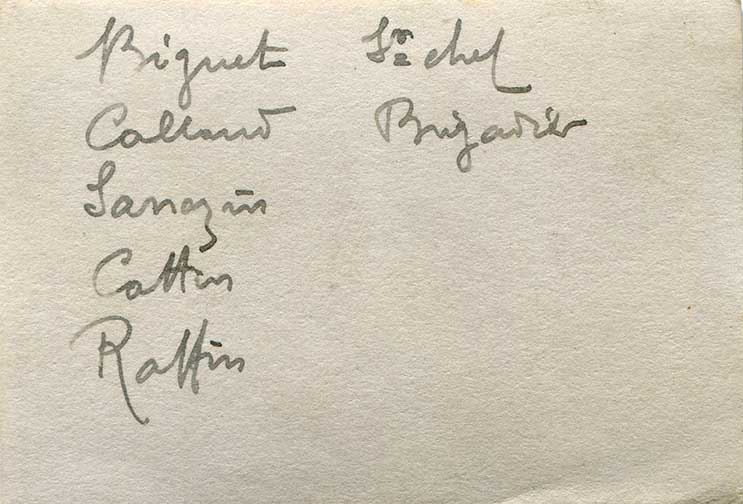 Biguet Sr chef
Calland Brigadier
Sarrazin
Cattin
Raffin